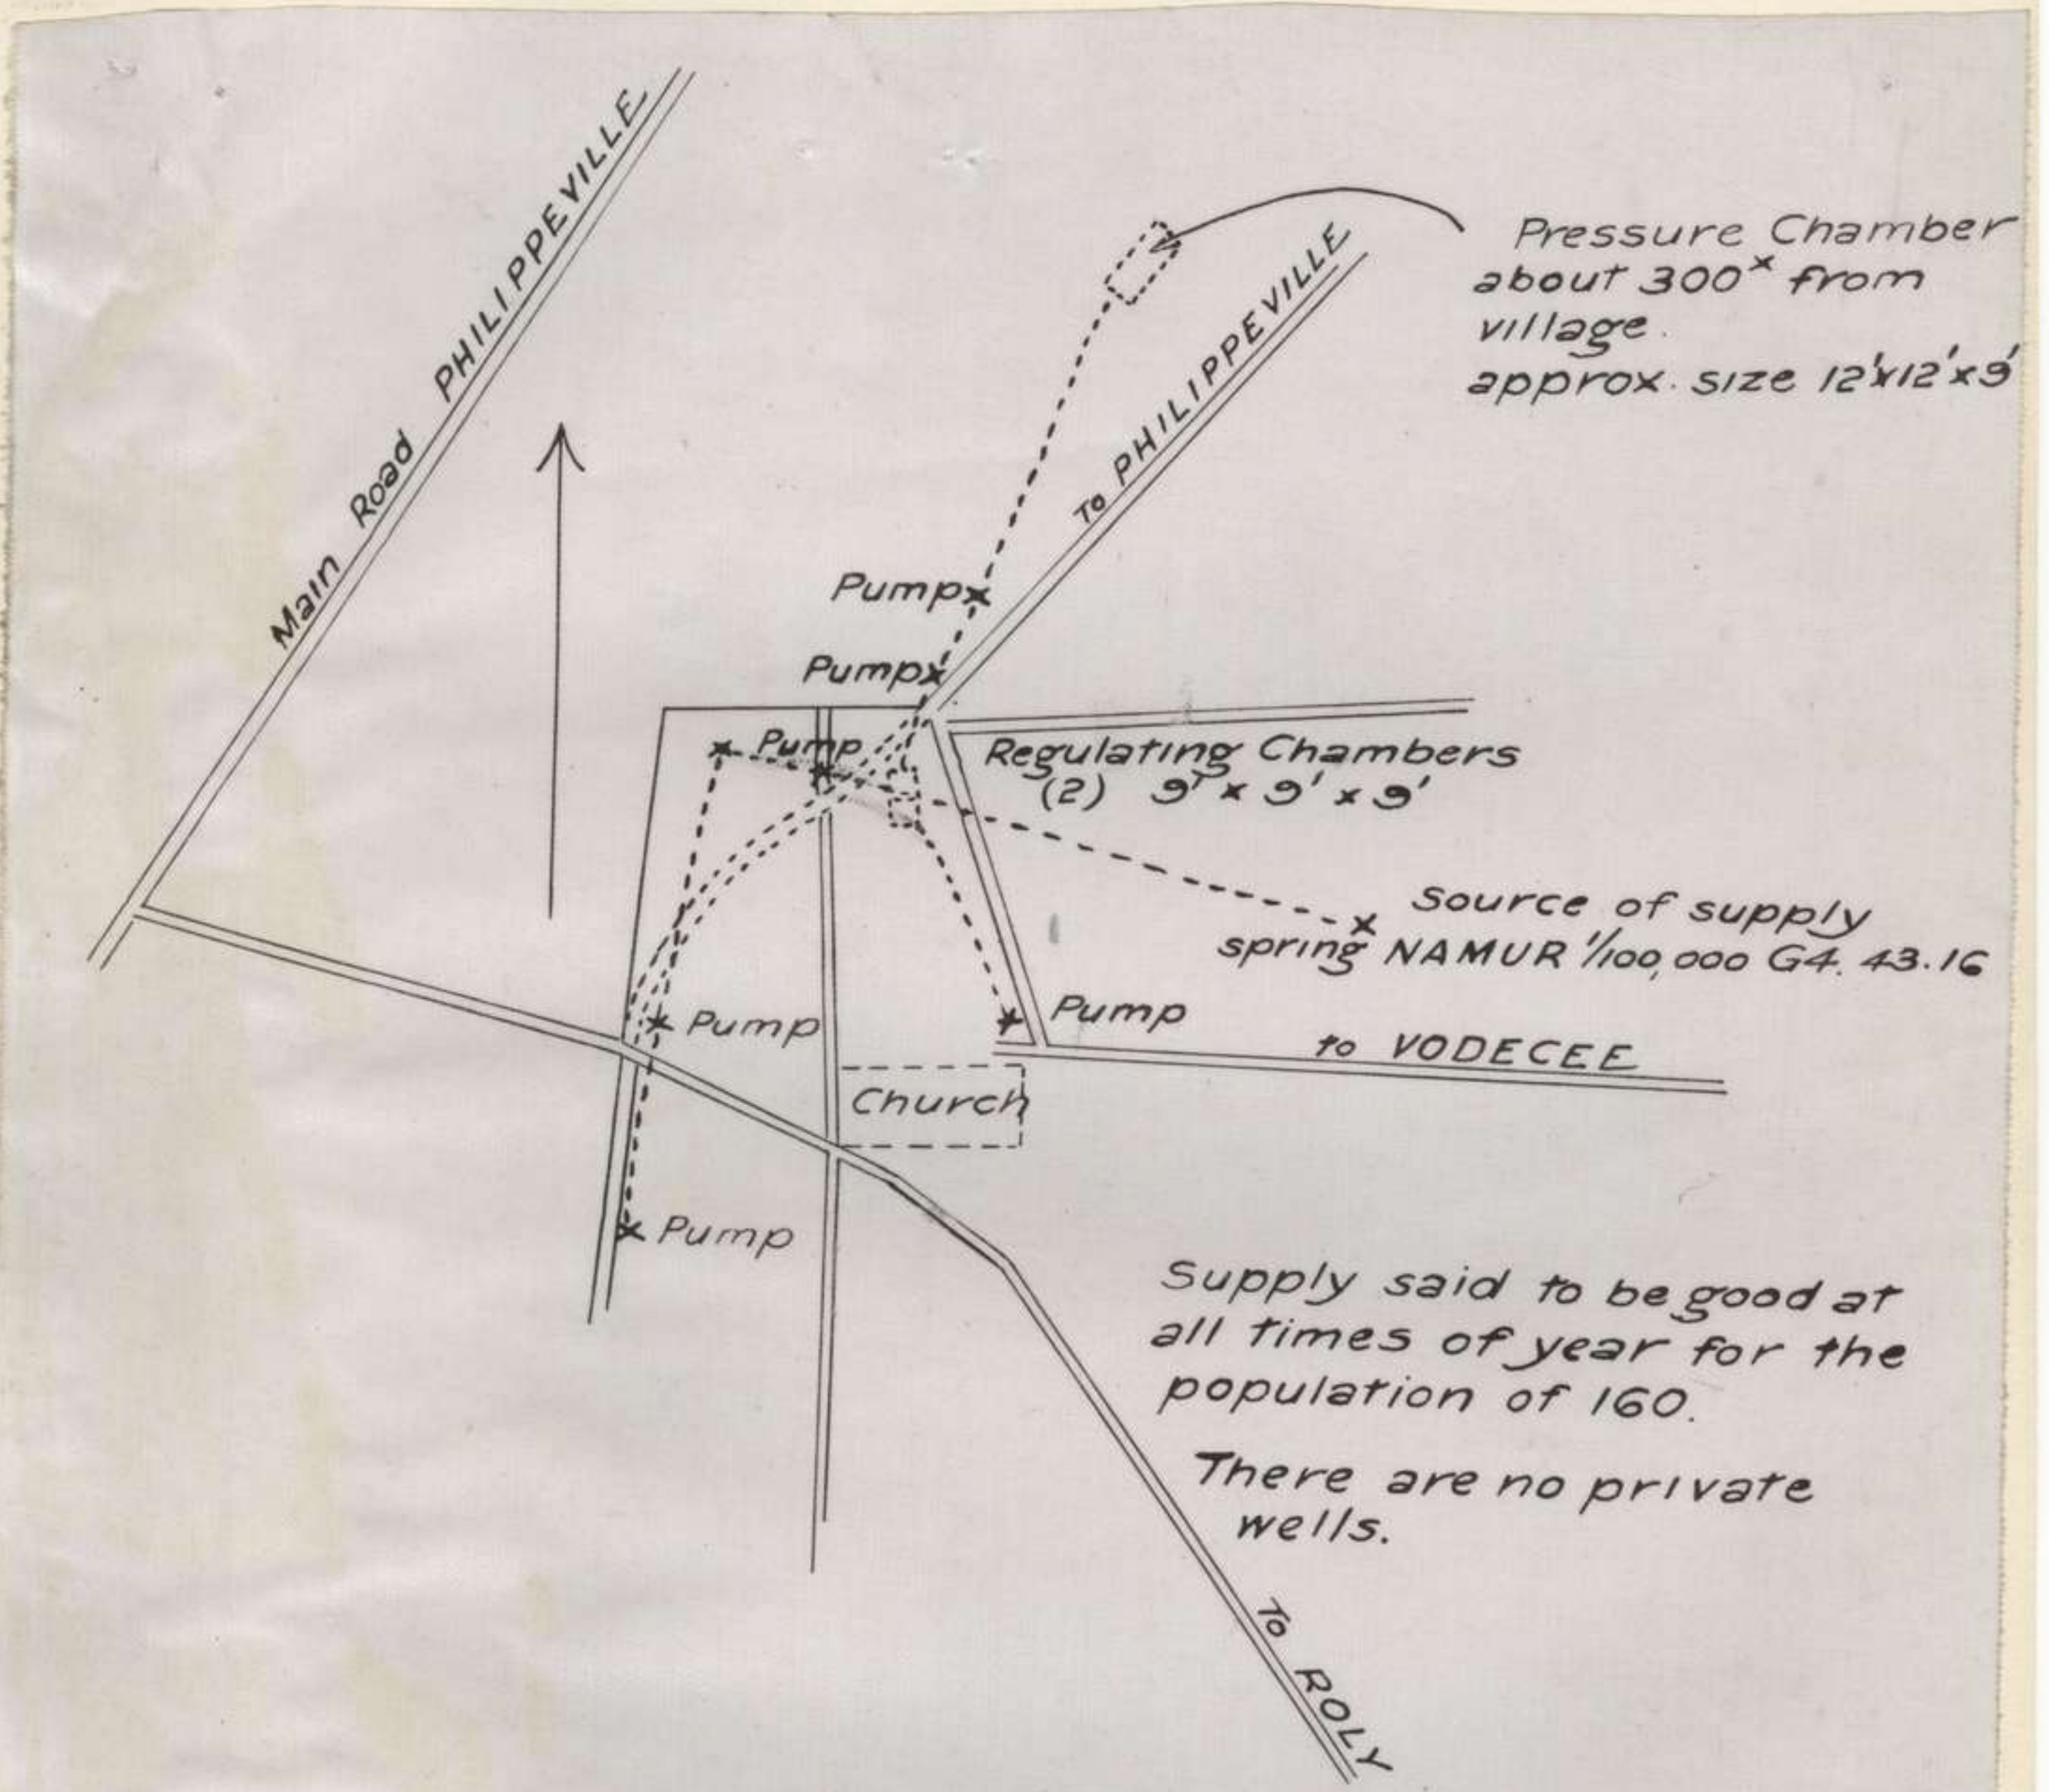 Main Road PHILIPPEVILLE
To PHILIPPEVILLE
Pressure Chamber
about 300ˣ from
village.
approx. size 12'x12'x9'
Pump
Pump
Pump
Regulating Chambers
(2) 9' x 9' x 9'
Source of supply
spring NAMUR 1/100,000 G4. 43.16
Pump
Pump
to VODECEE
Church
Pump
Supply said to be good at
all times of year for the
population of 160.
There are no private
wells.
To ROLY